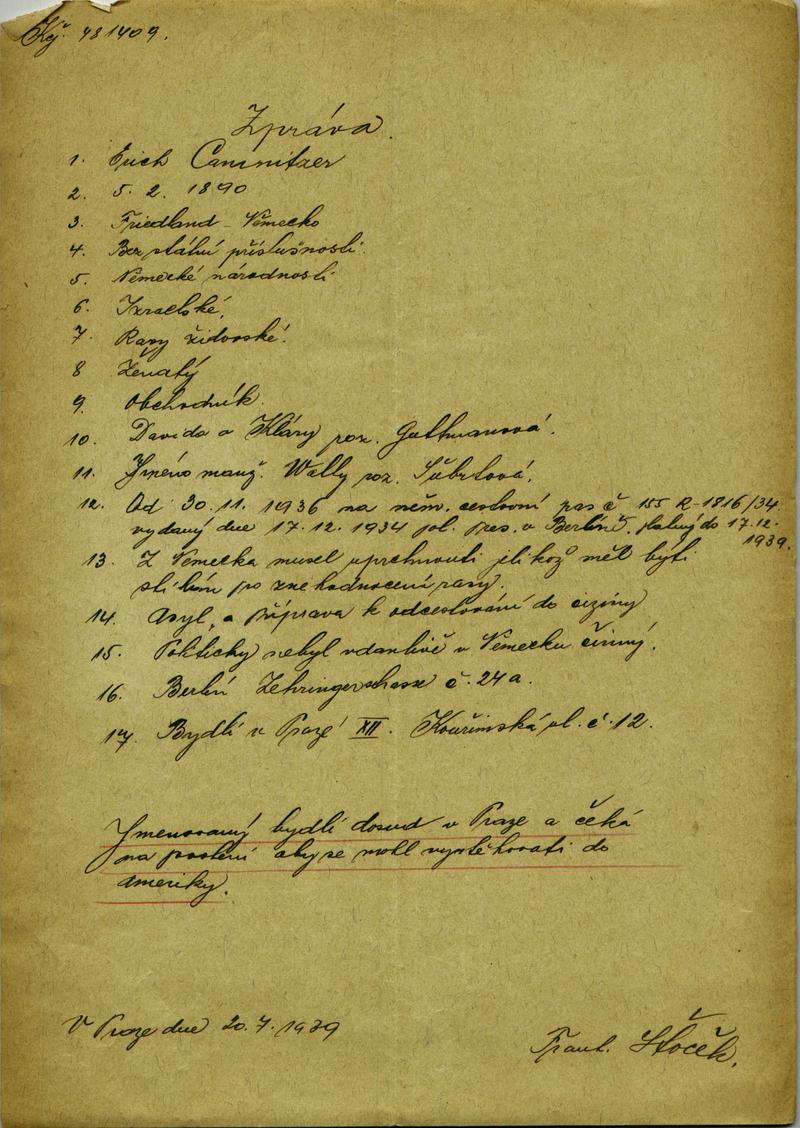 Kž. 481409.
Zpráva.
1. Erich Camnitzer
2. 5. 2. 1890
3. Friedland - Německo
4. Bez státní příslušnosti.
5. Německé národnosti
6. Izraelské.
7. Rasy židovské.
8 Ženatý
9. Obchodník.
10. Davida a Kláry roz. Guttmanová.
11. Jméno manž. Wally roz. Šubrtová.
12. Od 30. 11. 1936 na něm. cestovní pas č 155 R-1816/34
vydaný dne 17. 12. 1934 pol. pres. v Berlíně. platný do 17. 12.
1939.
13. Z Německa musel uprchnouti jelikož měl býti
stíhán po znehodnocení rasy.
14. Asyl, a příprava k odcestování do ciziny
15. Politicky nebyl údanlivě v Německu činný.
16. Berlín č. 24a.
17. Bydlí v Praze XII. Kouřimská ul. č. 12.
Jmenovaný bydlí dosud v Praze a čeká
na povolení aby se mohl vystěhovati do
Ameriky.
V Praze dne 20. 7. 1939
Frant. Štoček.